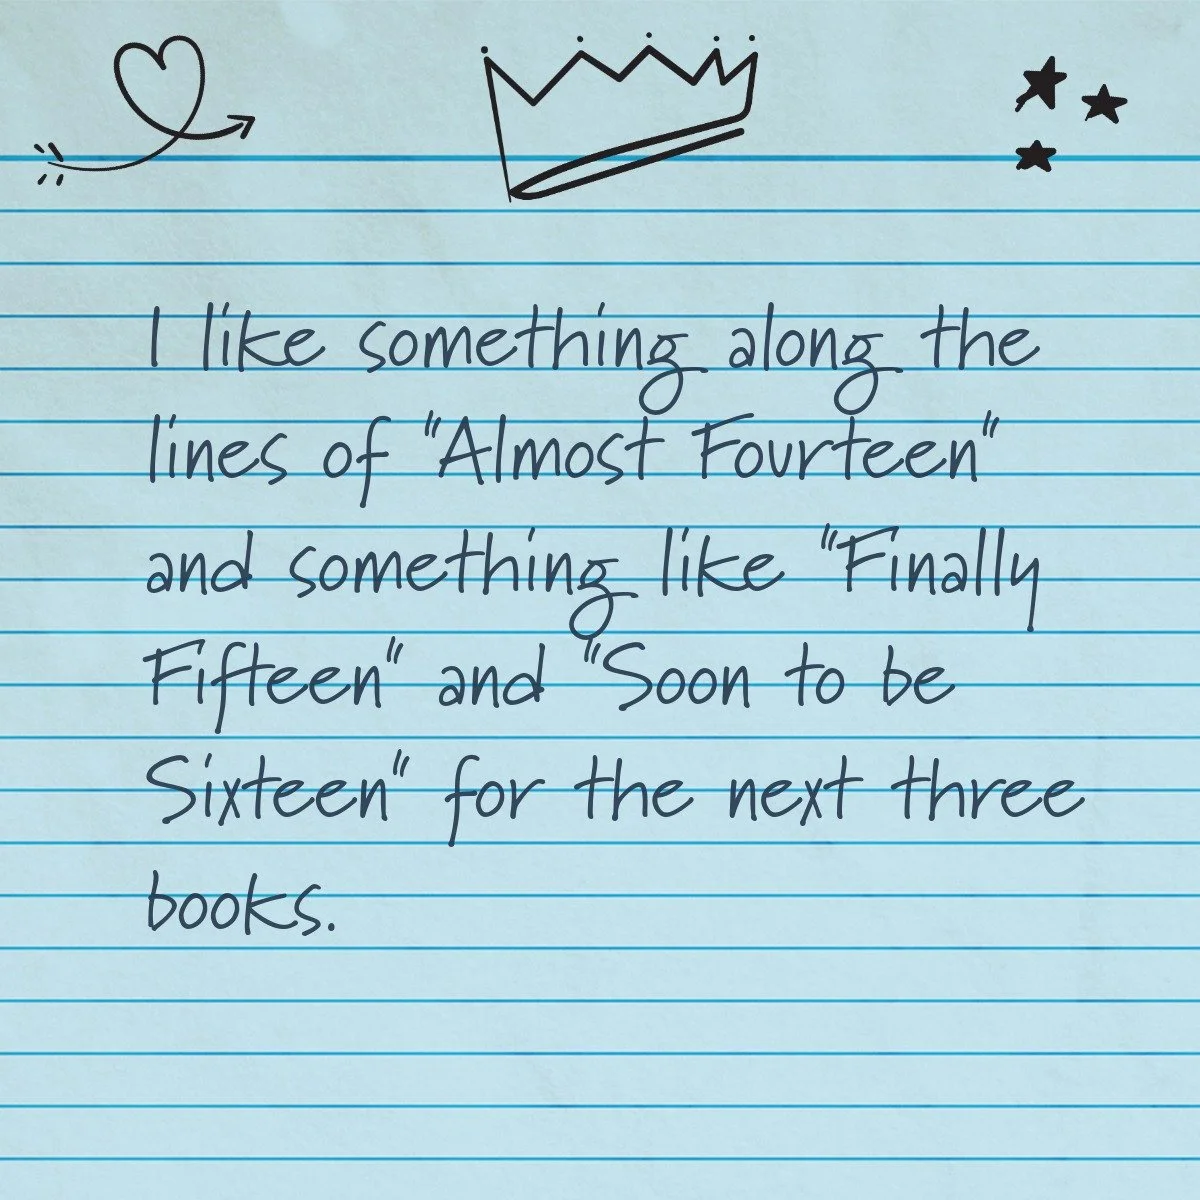 I like something along the
lines of "Almost Fourteen"
and something like "Finally
Fifteen" and "Soon to be
Sixteen" for the next three
books.